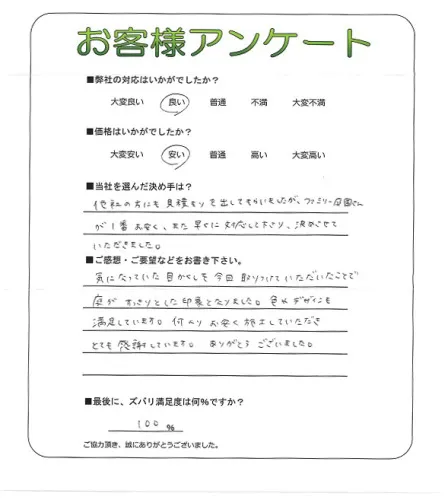 お客様アンケート
■弊社の対応はいかがでしたか?
大変良い 良い 普通 不満 大変不満
■価格はいかがでしたか?
大変安い 安い 普通 高い 大変高い
■当社を選んだ決め手は?
他社の方にも見積もりを出してもらいましたが、ファミリー庭園さん
が1番お安く、また早々に対応して下さり、決めさせて
いただきました。
■ご感想・ご要望などをお書き下さい。
気になっていた目かくしを今回取りつけていただいたことで
庭がすっきりとした印象となりました。色やデザインも
満足しています。何よりお安く施工していただき
とても感謝しています。ありがとうございました。
■最後に、ズバリ満足度は何%ですか?
100 %
ご協力頂き、誠にありがとうございました。